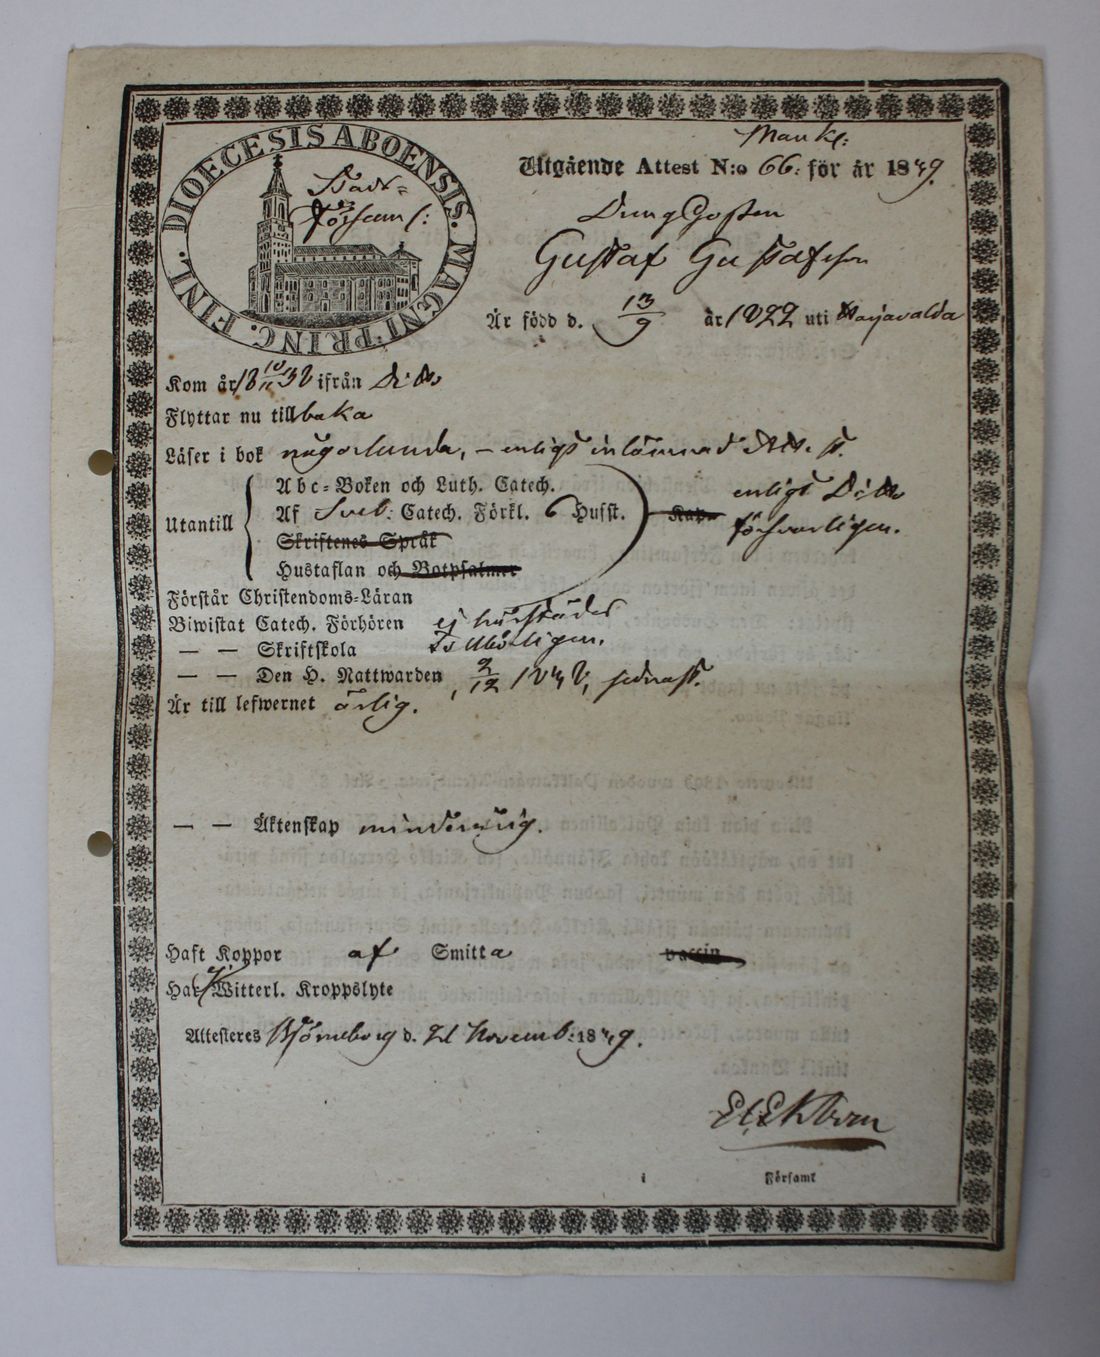 DIOECESIS ABOENSIS. MAGNI PRINC. FINL.
Stads=
Församl:
Mankl:
Utgående Attest N:o 66: för år 1849.
Drung Gossen
Gustaf Gustafsson
Är född d. 13/9 år 1822 uti Harjavalda
Kom år 18 10/11 38 ifrån Dito
Flyttar nu tillbaka
Läser i bok någorlunda, – enligt inlämnad Att. st.
Utantill
Abc=Boken och Luth. Catech.
Af Sveb: Catech. Förkl. 6 Hufst.
Skriftenes Språk
Hustaflan och Botpsalmer
Kap.
enligt Dito
försvarligen.
Förstår Christendoms=Läran
Biwistat Catech. Förhören ej härstädes
— — Skriftskola
— — Den H. Nattwarden 2/12 1848, sednast.
Är till lefwernet ärlig.
— — Äktenskap
Haft Koppor af Smitta vaccin
Har Witterl. Kroppslyte
Attesteres Björneborg d. 21 Novemb: 1849.
i Församl